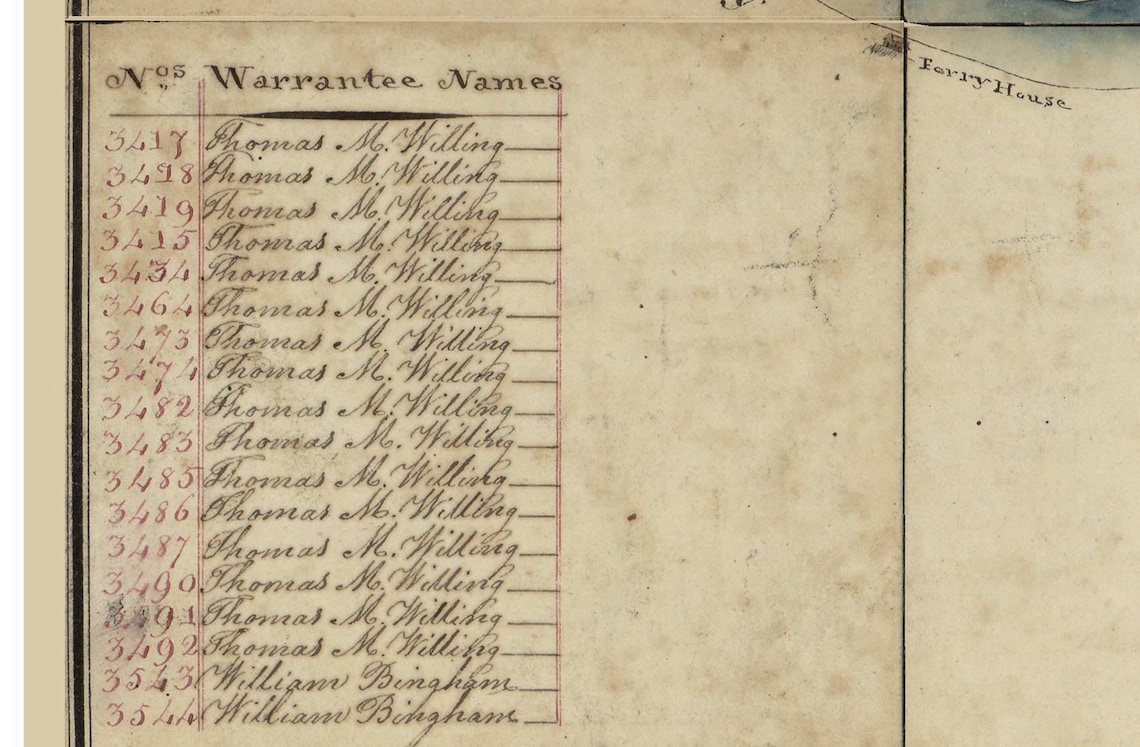 Ferry House
Nos Warrantee Names
3417 Thomas M. Willing
3418 Thomas M. Willing
3419 Thomas M. Willing
3415 Thomas M. Willing
3434 Thomas M. Willing
3464 Thomas M. Willing
3473 Thomas M. Willing
3474 Thomas M. Willing
3482 Thomas M. Willing
3483 Thomas M. Willing
3485 Thomas M. Willing
3486 Thomas M. Willing
3487 Thomas M. Willing
3490 Thomas M. Willing
3491 Thomas M. Willing
3492 Thomas M. Willing
3543 William Bingham
3544 William Bingham